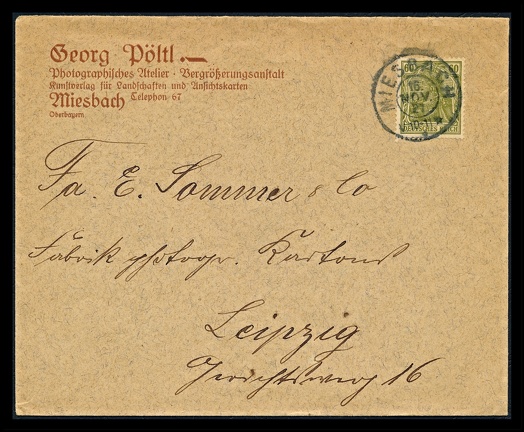 Georg Pöltl.
Photographisches Atelier · Vergrößerungsanstalt
Kunstverlag für Landschaften und Ansichtskarten
Miesbach Telephon 67
Oberbayern
60 60
MIESBACH
16.
NOV.
21
DEUTSCHES REICH
Fa. E. Sommer & Co
Fabrik photogr. Kartons
Leipzig
Gerichtsweg 16